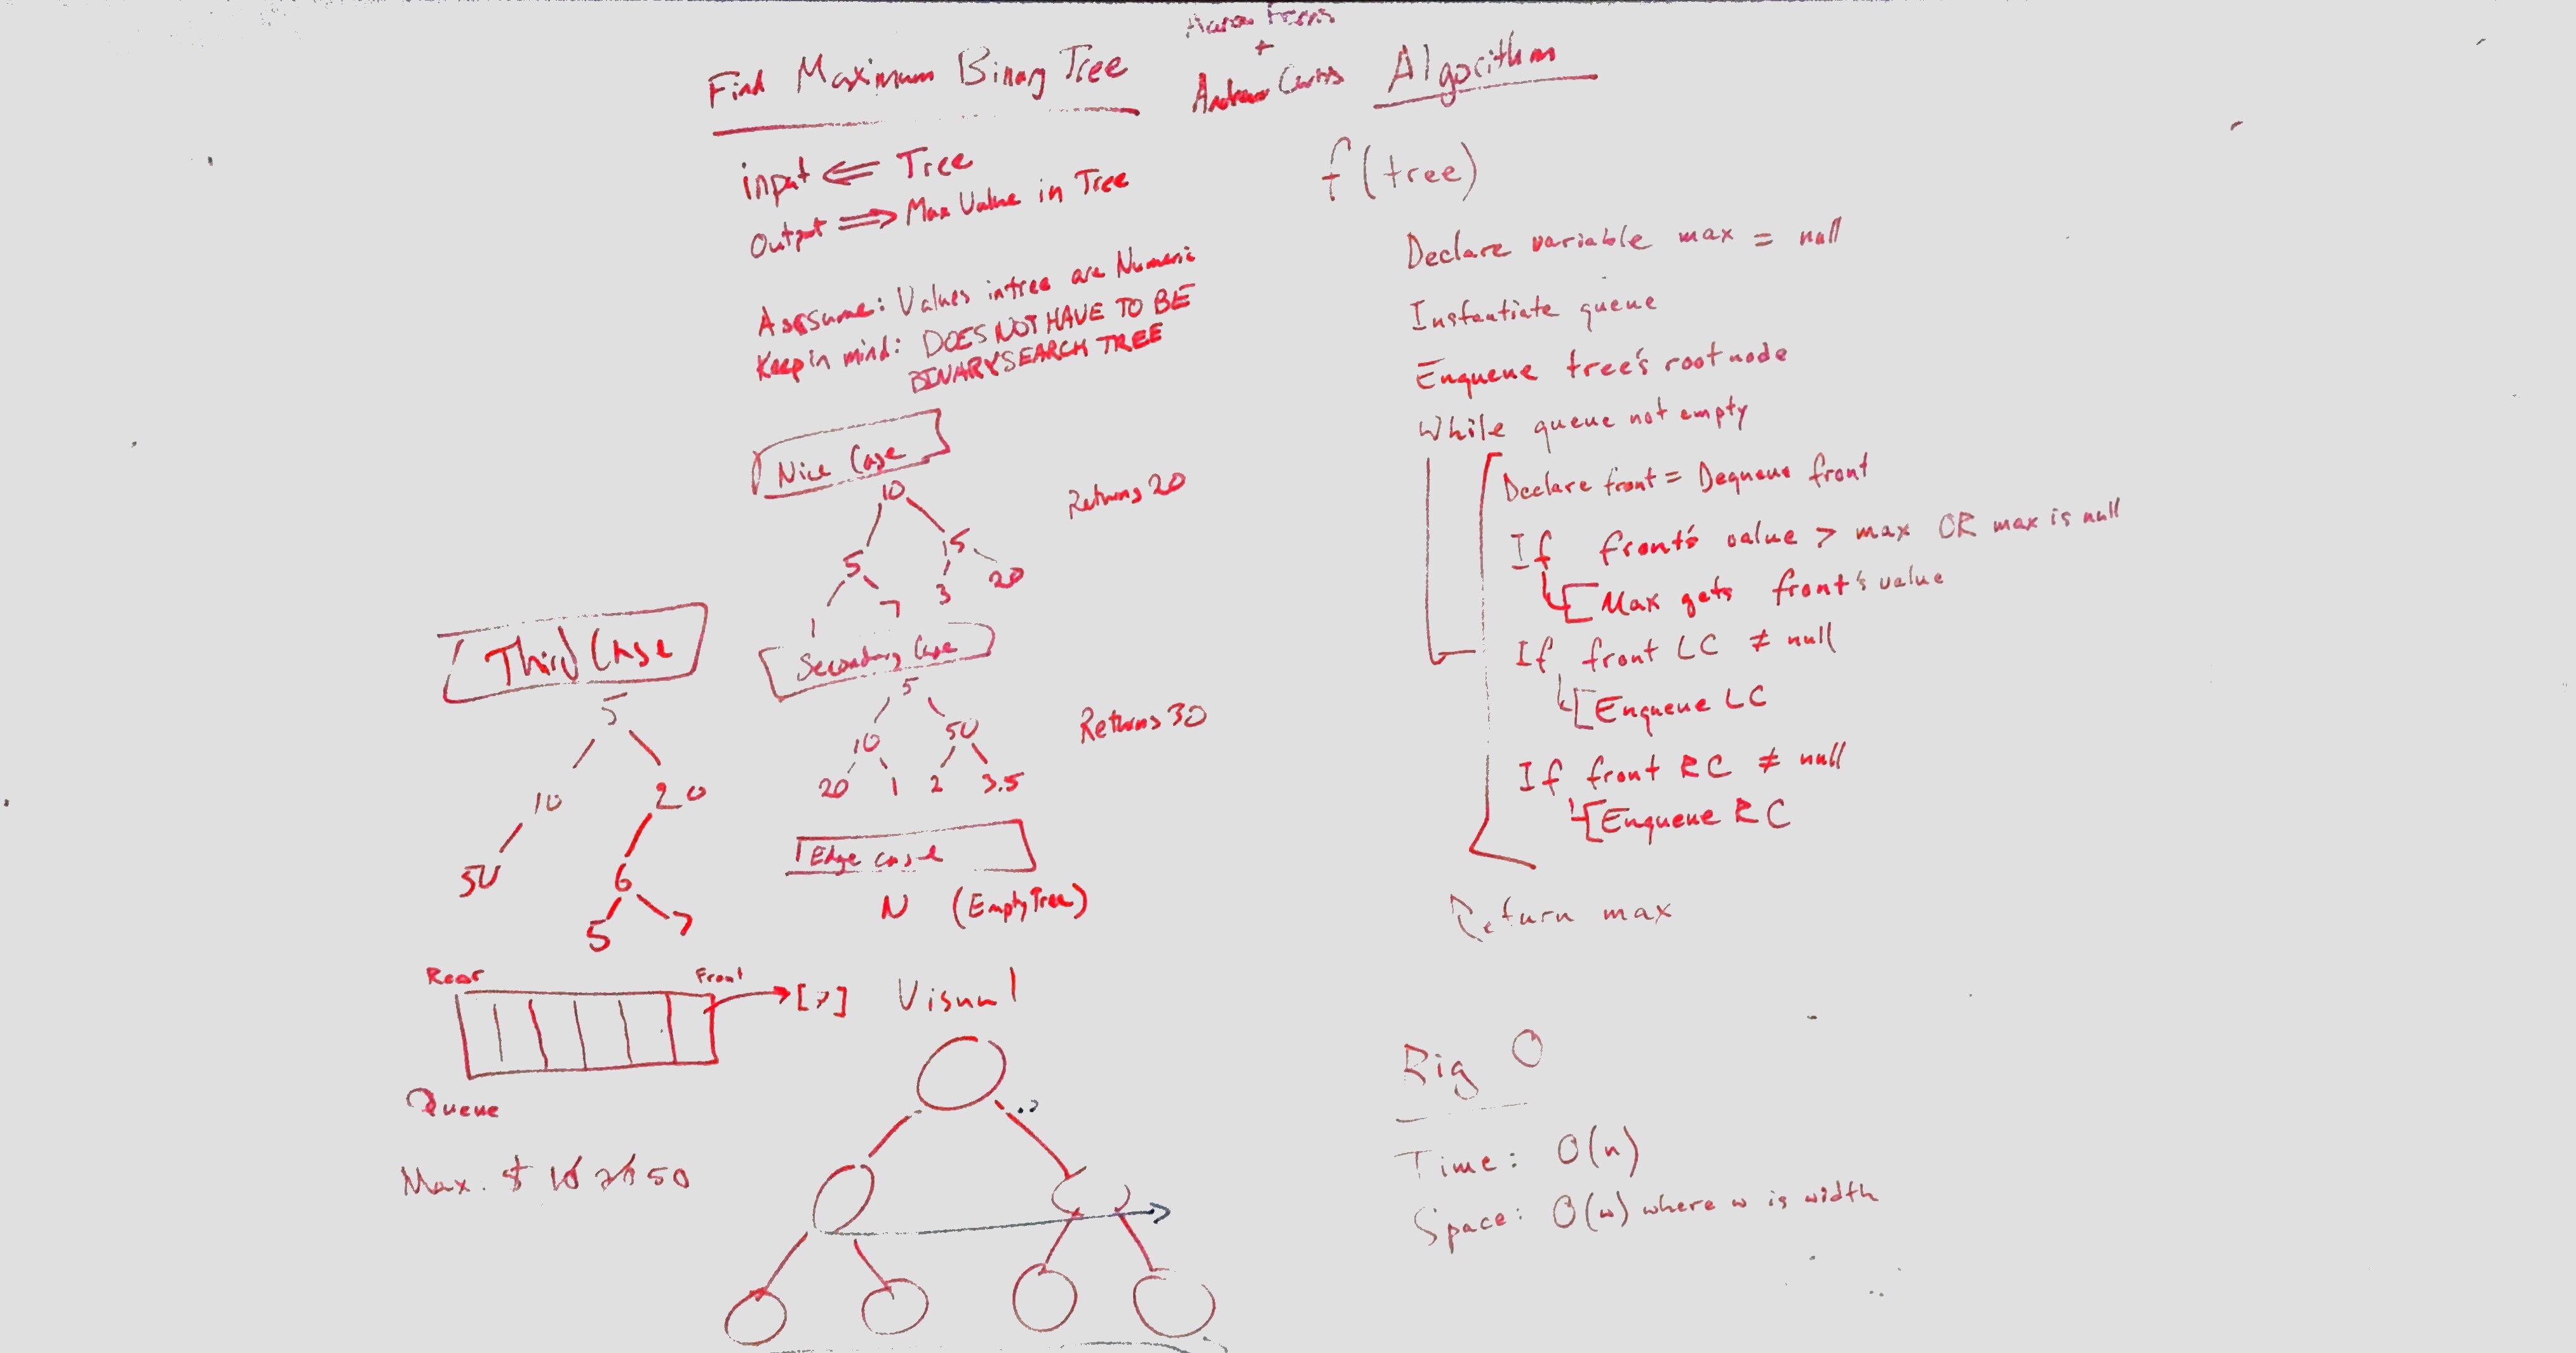 Find Maximum Binary Tree
Aaron Ferris
+
Andrew Curtis
input ⇐ Tree
Output ⇒ Max Value in Tree
Asssume: Values in tree are Numeric
Keep in mind: DOES NOT HAVE TO BE
BINARY SEARCH TREE
Nice Case
10
5 15
1 7 3 20
Returns 20
Secondary Case
5
10 50
20 1 2 3.5
Returns 30
Third Case
5
10 20
50 6
5 7
Edge case
N (Empty Tree)
Rear Front
Queue
Max. 5 10 20 50
Visual
Algorithm
f(tree)
Declare variable max = null
Instantiate queue
Enqueue tree's root node
While queue not empty
Declare front = Dequeue front
If front's value > max OR max is null
Max gets front's value
If front LC ≠ null
Enqueue LC
If front RC ≠ null
Enqueue RC
Return max
Big O
Time: O(n)
Space: O(w) where w is width